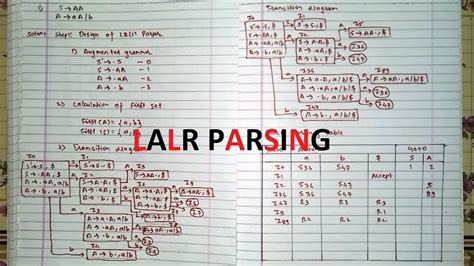 1) S→AA
A→aA/b
Soln: Step1: Design of LR(1) Parser
1) Augmented grammar
S'→.S —0
S→.AA —1
A→.aA —2
A→.b —3
2) Calculation of First set
First(A)={a,b}
First(S)={a,b}
3) Transition diag
I0
S'→.S,$
S→.AA,$
A→.aA,a/b
A→.b,a/b
I1
S'→S.,$
I2
S→A.A,$
A→.aA,$
A→.b,$
I5
S→AA.,$
LALR PARSING
Transition diagram
I0
S'→.S,$
S→.AA,$
A→.aA,a/b
A→.b,a/b
I1
S'→S.,$
I2
S→A.A,$
A→.aA,$
A→.b,$
I5
S→AA.,$
I36
I47
I36
A→a.A,a/b/$
A→.aA,a/b/$
A→.b,a/b/$
I89
A→aA.,a/b/$
I36
I47
I47
A→b.,a/b/$
Table
Goto
a b $ S A
I0 S36 S47 1 2
I1 Accept
I2 S36 S47 5
I36 S36 S47 89
I47 R3 R3 R3
I5 R1
I89 R2 R2 R2